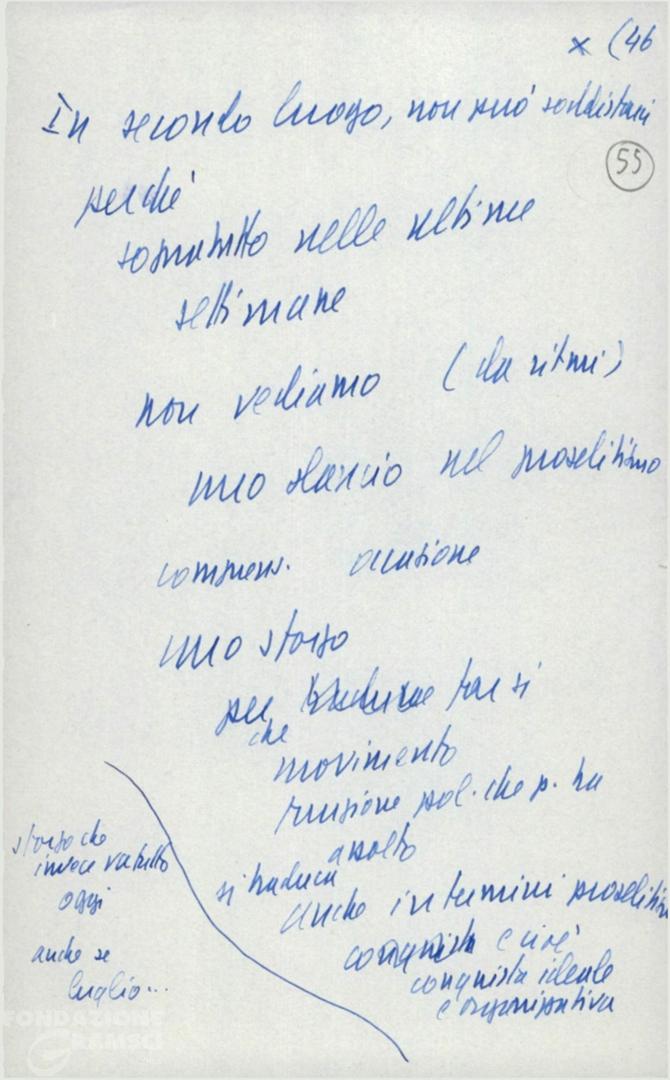 x (46
In secondo luogo, non può soddisfarci
55
perché
sopratutto nelle ultime
settimane
non vediamo (da ritmi)
uno slancio nel proselitismo
comprens. occasione
uno sforzo
per tradurre far si
che
movimento
funzione pol. che p. ha
assolto
si traduca
anche in termini proselitismo
conquista e cioè
conquista ideale
e organizzativa
sforzo che
invece va fatto
oggi
anche se
luglio...
FONDAZIONE
GRAMSCI